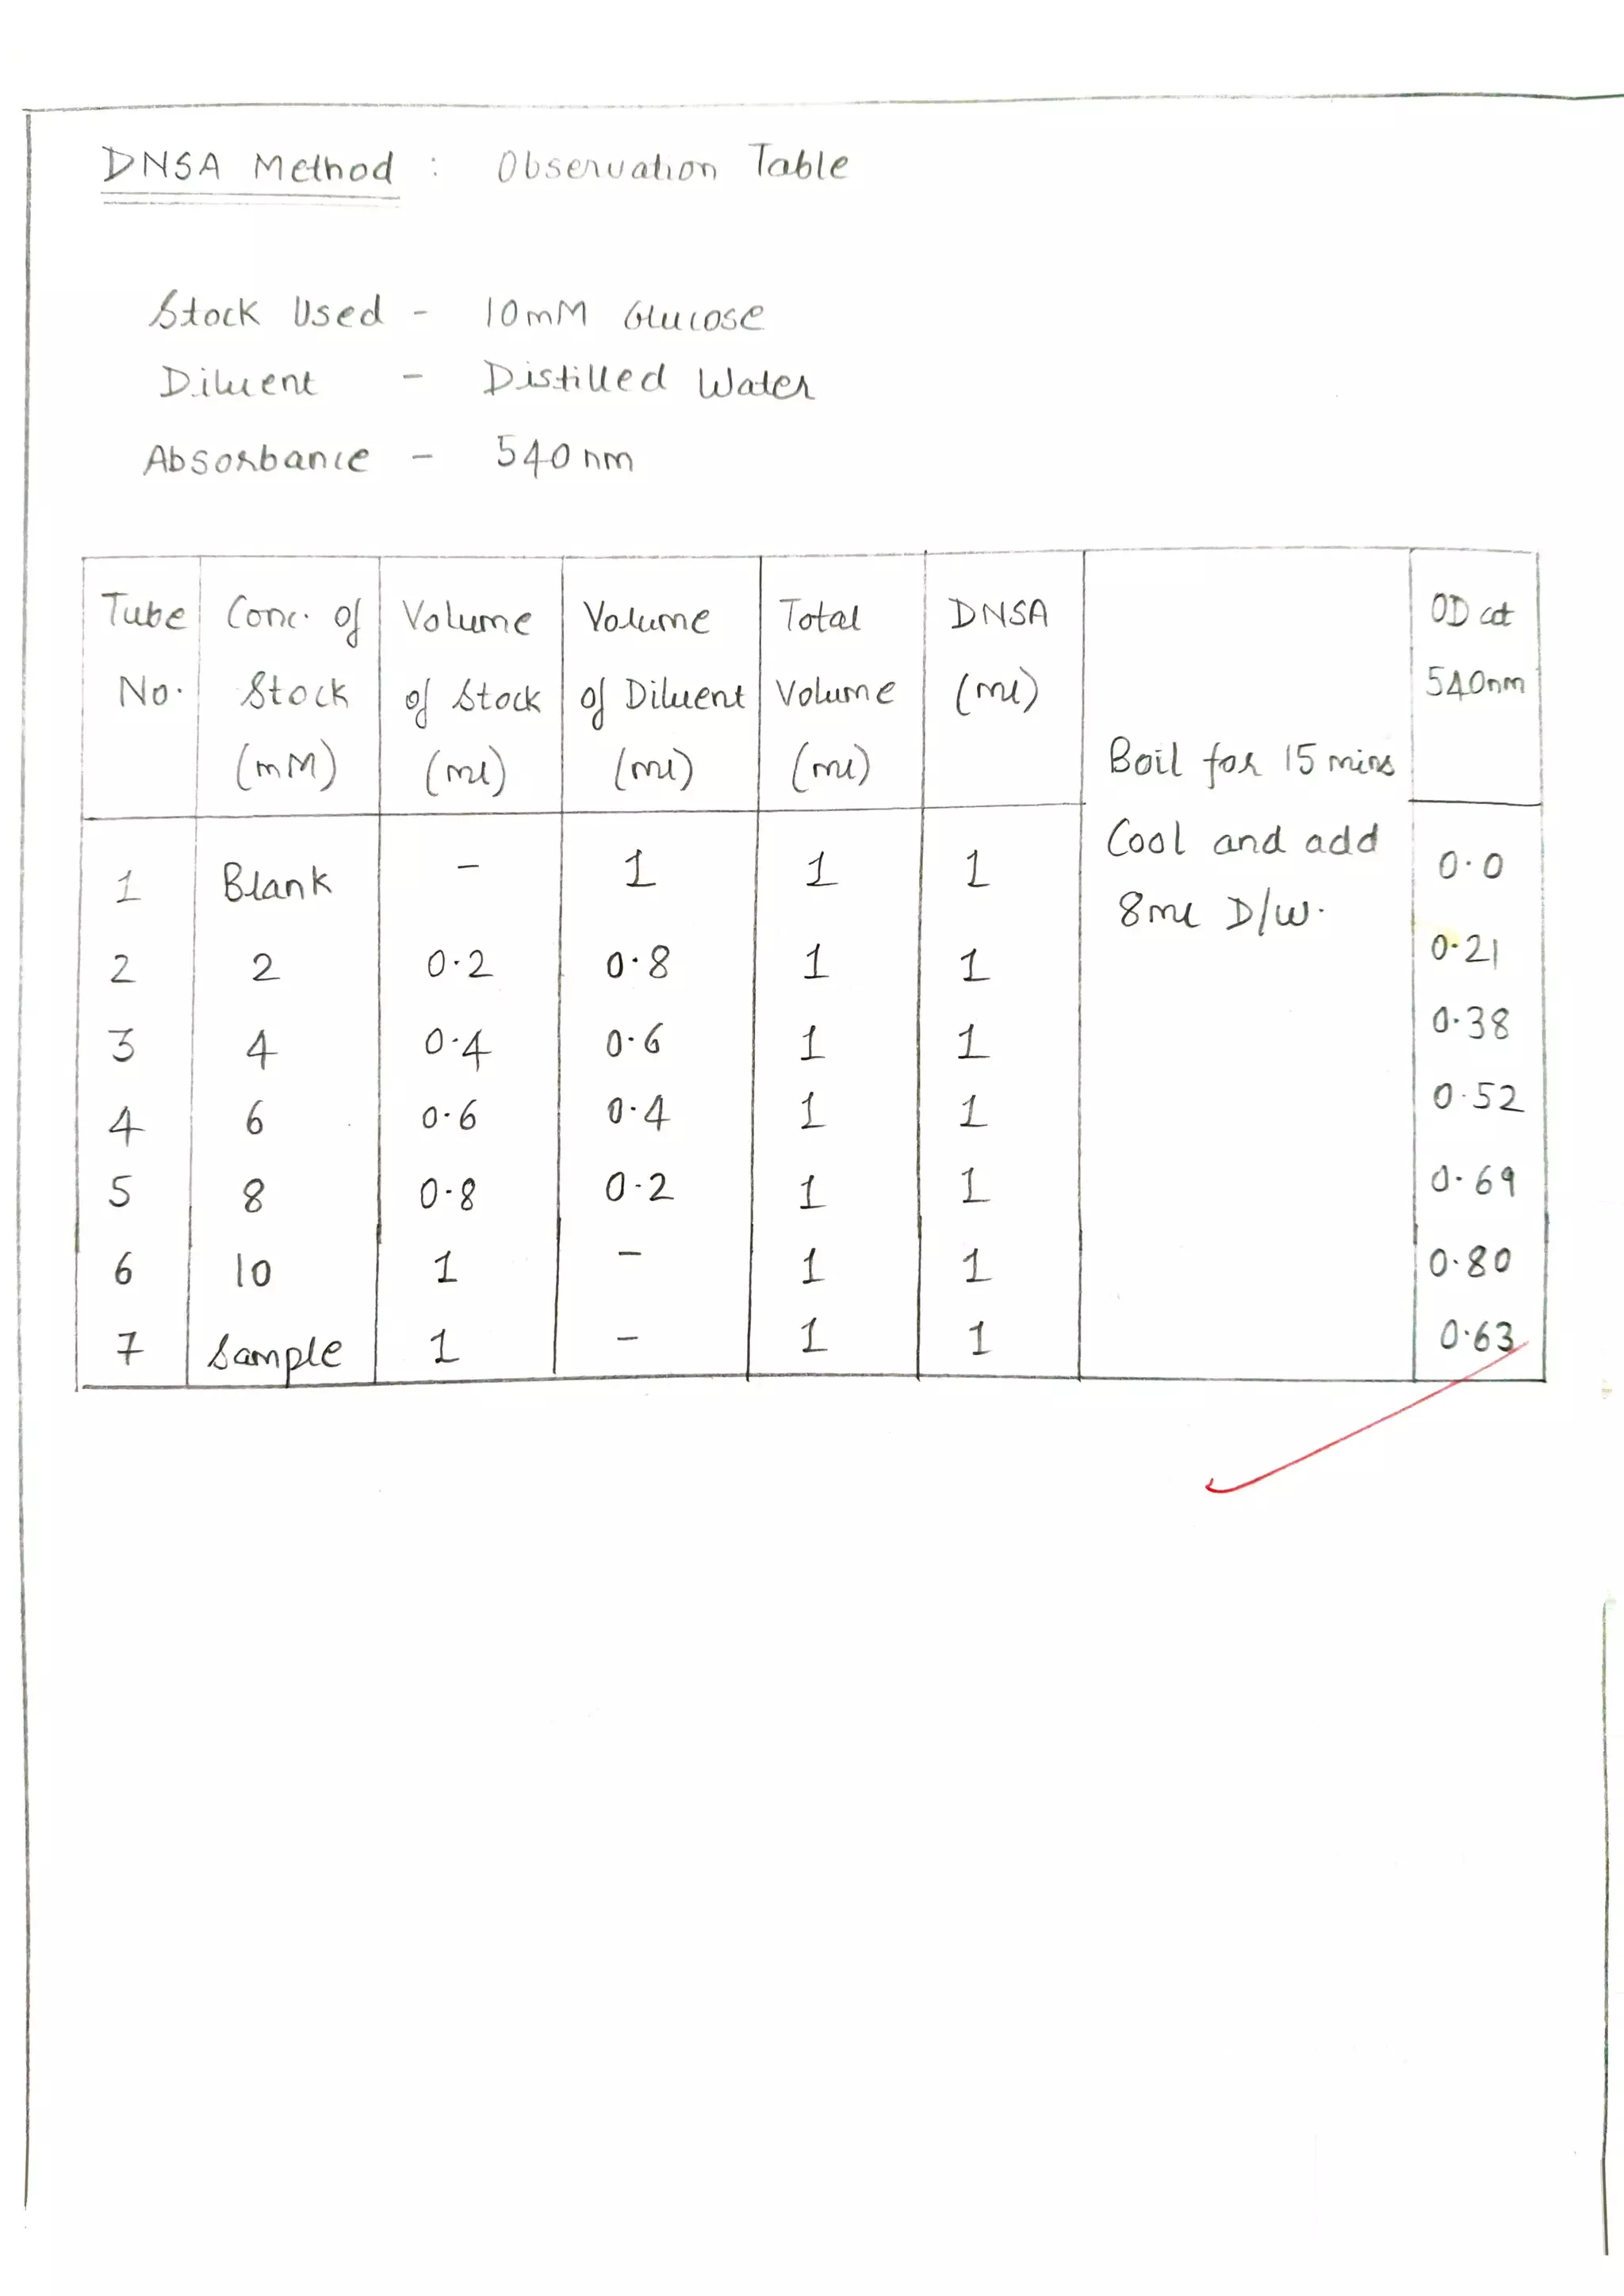 DNSA Method : Observation Table
Stock Used - 10mM Glucose
Diluent - Distilled Water
Absorbance - 540 nm
Tube No. Conc. of Stock (mM) Volume of Stock (ml) Volume of Diluent (ml) Total Volume (ml) DNSA (ml) OD at 540nm
Boil for 15 mins
Cool and add
8ml D/W.
1 Blank - 1 1 1 0.0
2 2 0.2 0.8 1 1 0.21
3 4 0.4 0.6 1 1 0.38
4 6 0.6 0.4 1 1 0.52
5 8 0.8 0.2 1 1 0.69
6 10 1 - 1 1 0.80
7 Sample 1 - 1 1 0.63